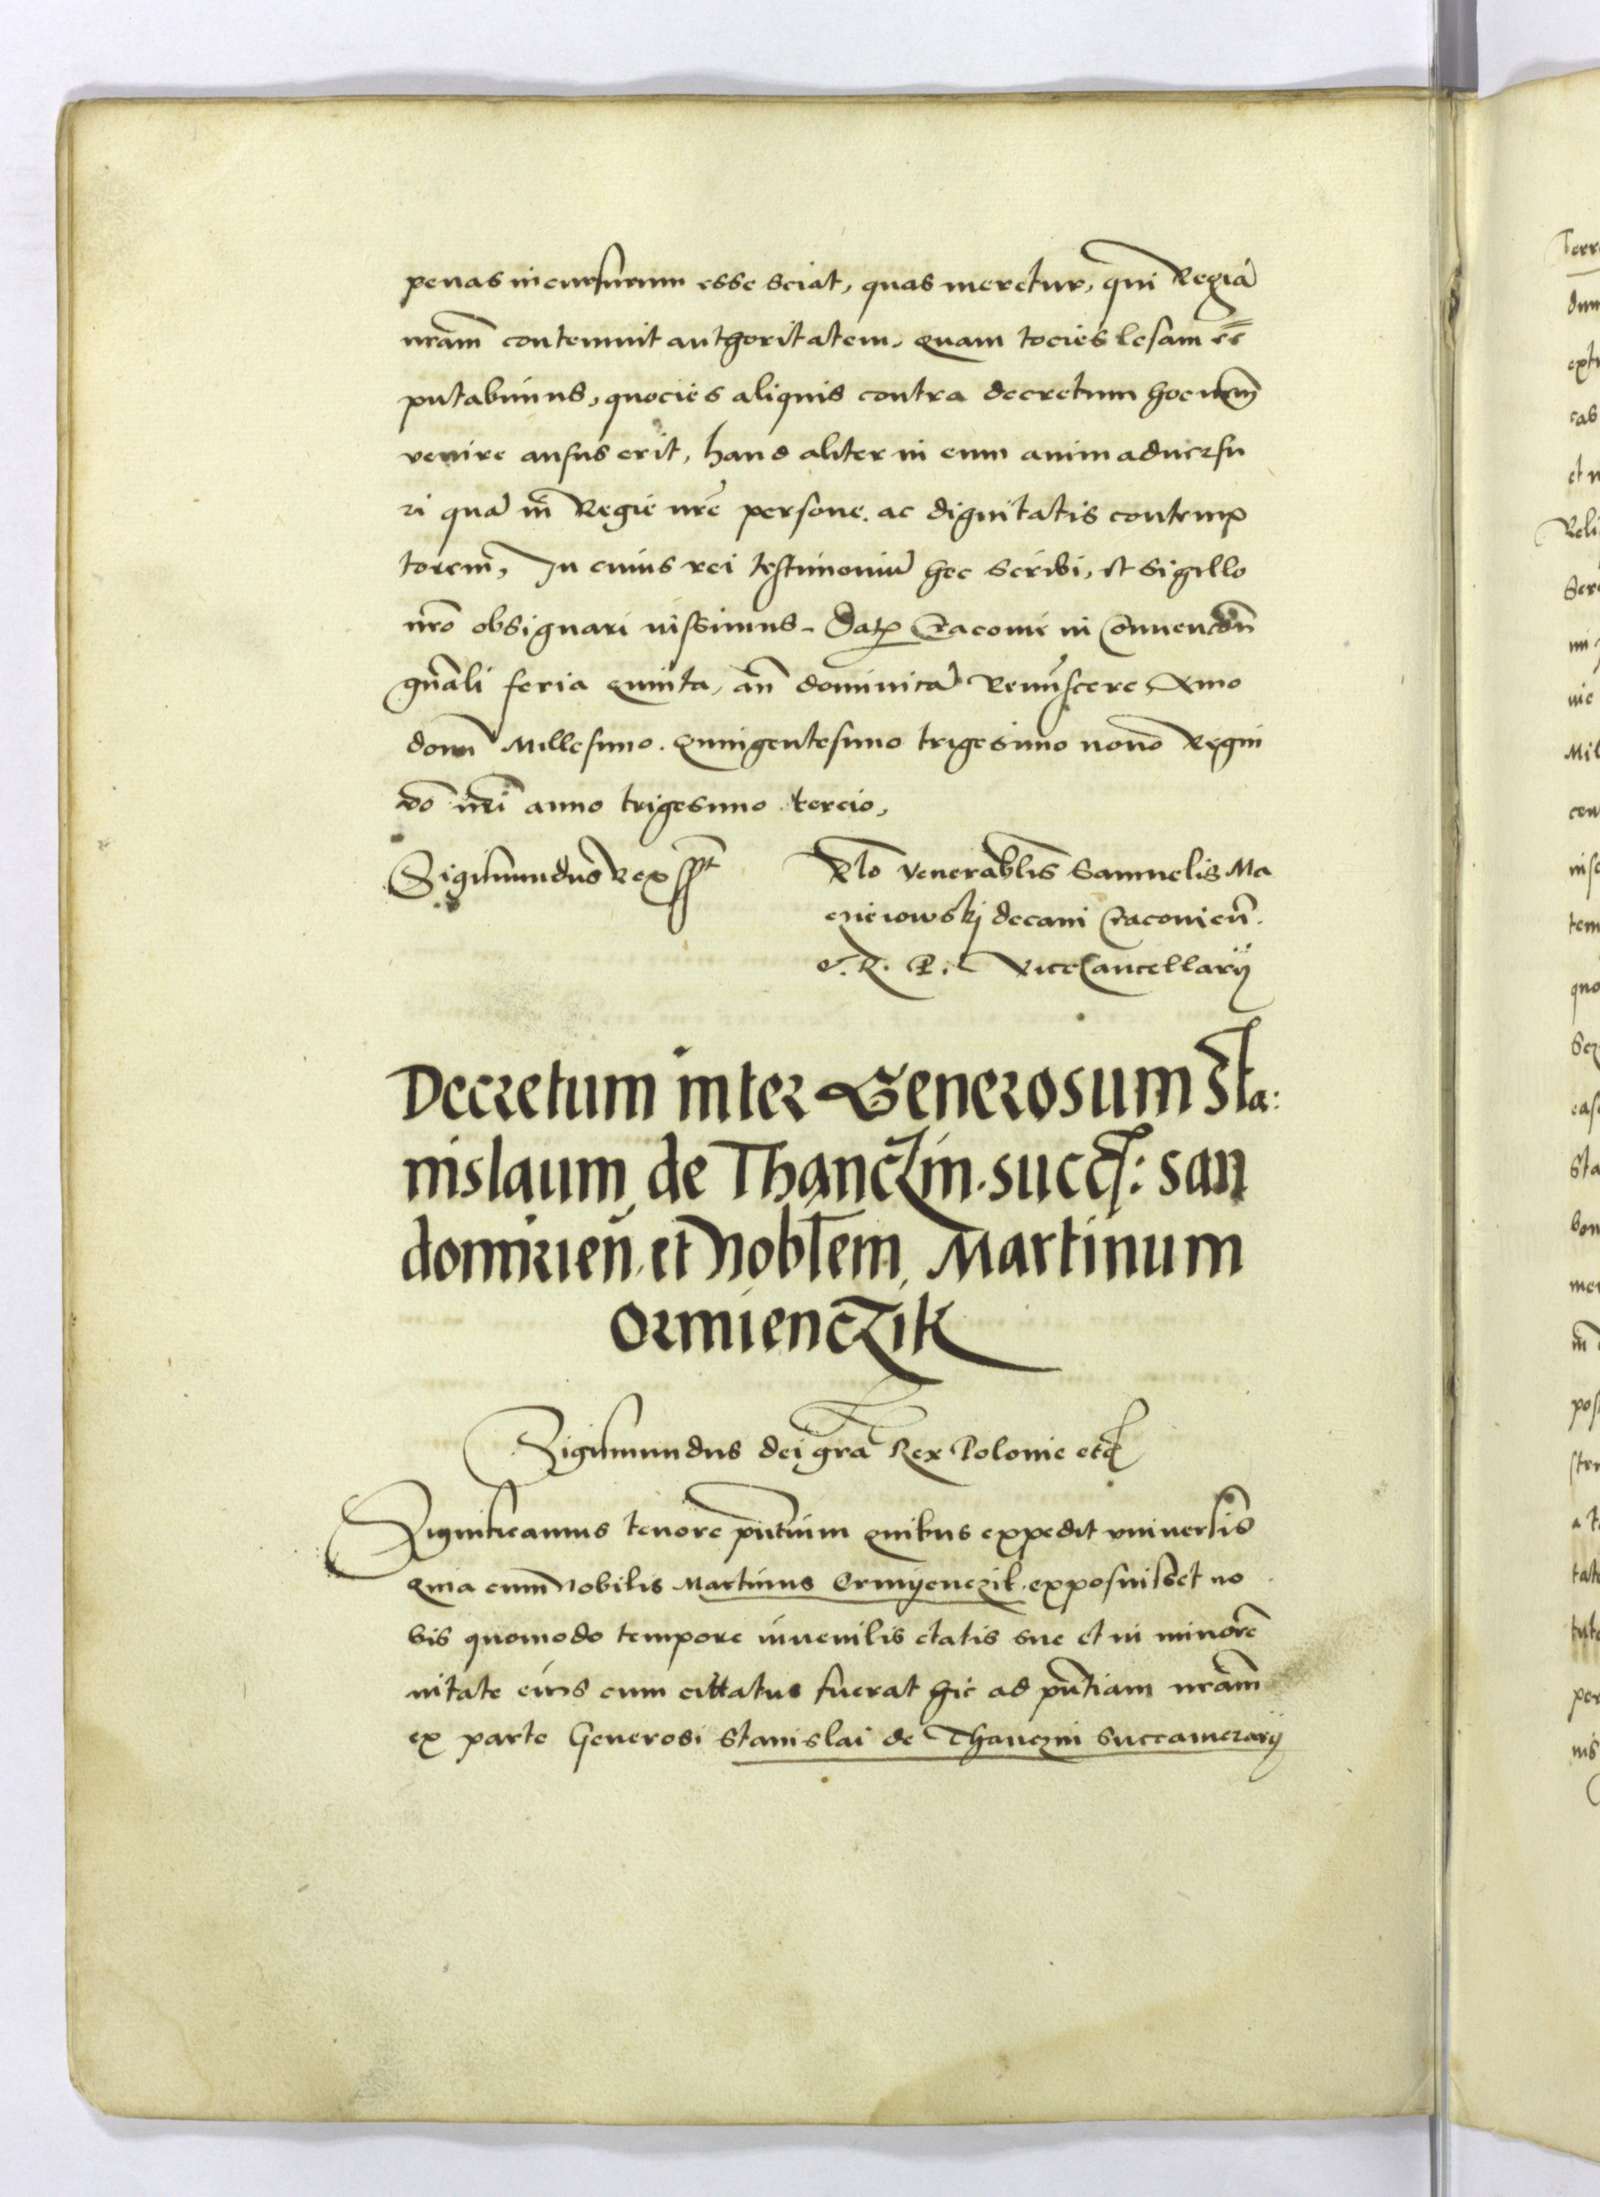 penas incursurum esse sciat, quas meretur, qui Regiā
nrām contemnit authoritatem, quam tocies lesam ēē
putabimus, quocies aliquis contra decretum hoc nrm̄
venire ausus erit, haud aliter in eum animaduersu
ri quā in Regie nrē persone. ac dignitatis contemp
torem, In cuius rei testimoniū hec scribi, et sigillo
nrō obsignari iussimus. Dat Cracouie in Conuencōn
gnāli feria quinta, an̄ dominicā Reminiscere, Anno
domi Millesimo. quingentesimo trigesimo nono Regni
vō nrī anno trigesimo tercio,
Sigismundus Rex sspt
Rlō venerabilis Samuelis Ma
cieiowskj decani Cracouien̄.
et. R. P. ViceCancellarij
Decretum inter Generosum Sta:
nislaum de Thanczin. succ: san
domirien̄. et Nobl̄em Martinum
Ormienczik
Sigismundus dei gr̄a Rex Polonie etc
Significamus tenore pn̄tium quibus expedit vniuersis
Quia cum Nobilis Martinus Ormyenczik. exposuisset no
bis quomodo tempore iuuenilis etatis sue et in minore
nitate eius cum cittatus fuerat hic ad pn̄tiam nrām
ex parte Generosi Stanislai de Thanczin Succamerarij